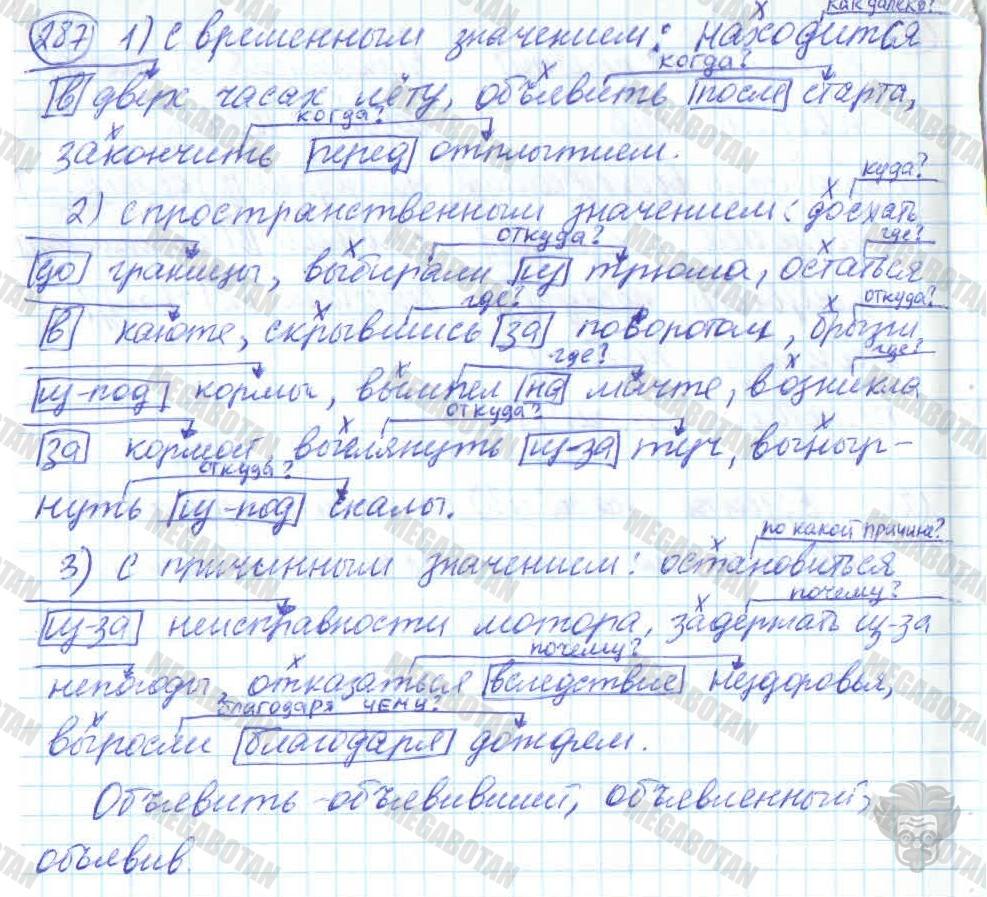 как далеко?
287 1) с временным значением: находится
когда?
в двух часах лёту, объявить после старта,
когда?
закончить перед отплытием.
куда?
2) с пространственным значением: доехать
откуда? где?
до границы, выбирали из трюма, остаться
где? откуда?
в каюте, скрывшись за поворотом, брызги
где? где?
из-под кормы, вымпел на мачте, возникла
откуда?
за кормой, выглянуть из-за туч, выныр-
откуда?
нуть из-под скалы.
по какой причине?
3) с причинным значением: остановиться
почему?
из-за неисправности мотора, задержать из-за
почему?
непогоды, отказаться вследствие нездоровья,
благодаря чему?
выросли благодаря дождям.
Объявить - объявивший, объявленный,
объявив.
MEGABOTAN